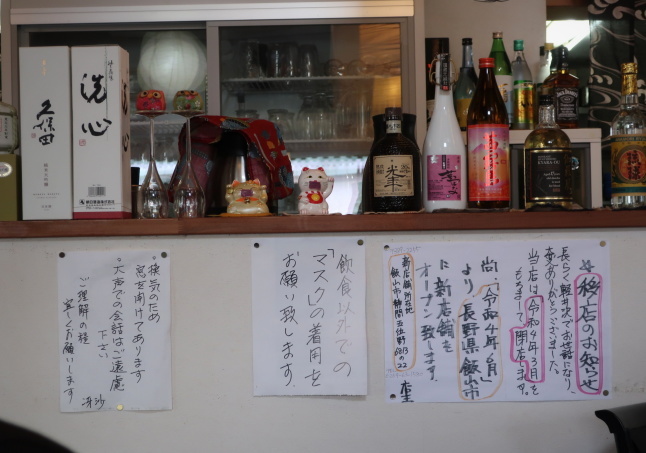 久保田
洗心
☆移店のお知らせ
長らく軽井沢でお世話になり、
ありがとうございました。
当店は「令和4年3月を
もちまして閉店します。
尚、「令和4年6月」
より長野県飯山市
に新店舗を
オープン致します。
新店舗所在地
飯山市静間
飲食以外での
「マスク」の着用を
お願い致します.
◦換気のため
窓を開けてあります
◦大声での会話はご遠慮
下さい
ご理解の程
宜しくお願いします